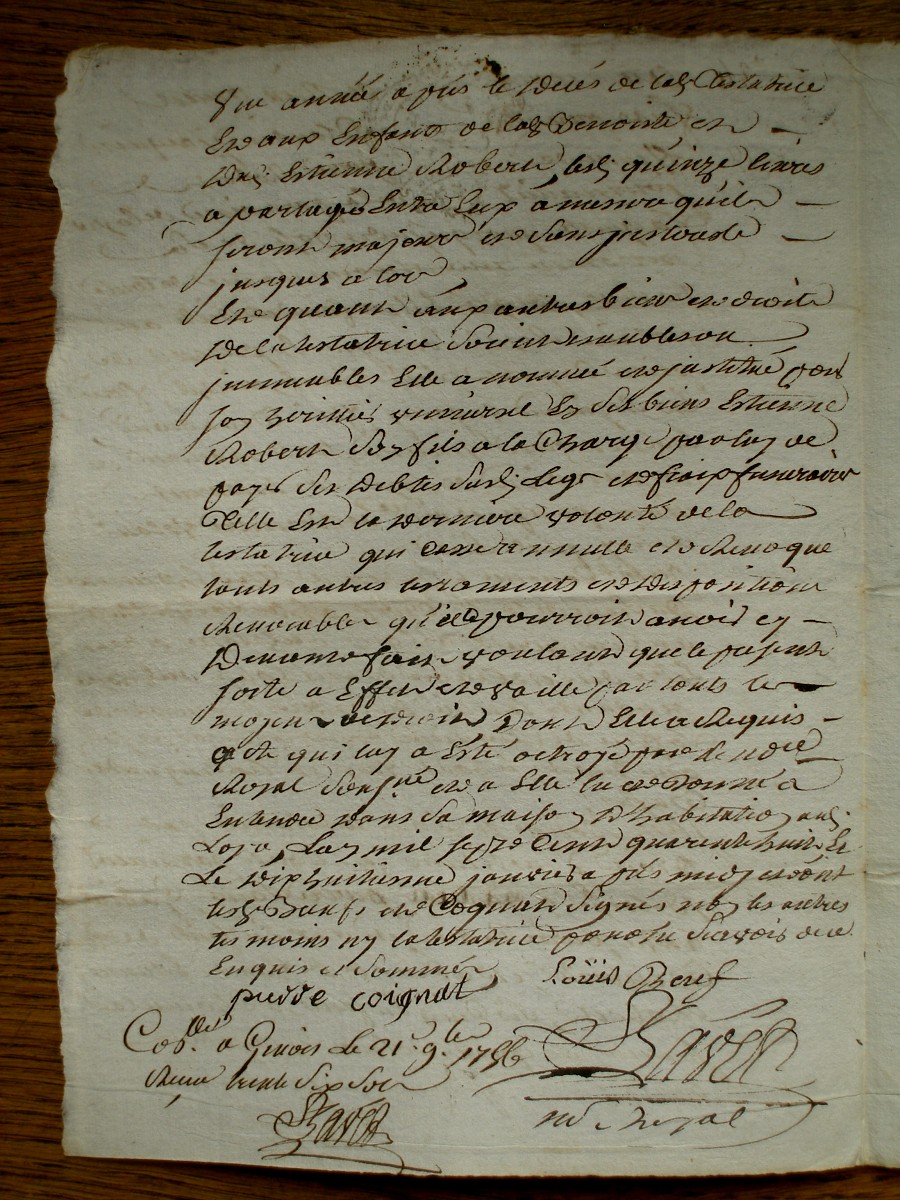 Une année apres le deces de lad. testatrice
Et aux Enfans de lad. Benoiste et
dud. Estienne Robert lesd. quinze livres
a partager Entre Eux a mesure qu'ils
seront majeurs et sans jnterest
jusques a lors
Et quant aux autres biens et droits
de la testatrice soient meubles ou
jmmeubles Elle a nommé et jnstitué pour
son heritier universel Et ses biens Estienne
Robert son fils a la Charge par luy de
payer ses debtes susd. legs et frais funeraires
Telle Est la derniere volonté de la
testatrice qui Casse annulle et Revoque
touts autres testaments et dispositions
Revocables qu'elle pourroit avoir cy
Devant fait voulant que le present
sorte a Effet et vaille par touts les
moyens de droit Dont Elle a Requis
acte qui luy a Esté octroyé par le no.re
Royal sousné et a Elle lu et donné a
Entendre dans sa maison d'habitation aud.
Loya, L'an mil sept Cent quarente huit Et
Le dix huitieme janvier a pres midy et dont
lesd. Beref et Coignat signés non les autres
tesmoins ny la testatrice pour ne sçavoir de ce
Enquis et sommés
pierre coignat Loüis Beref
Con.lle a Givors Le 21e 9.bre 1756
Receu trente six sols
Ravat
Ravat
no.re Royal